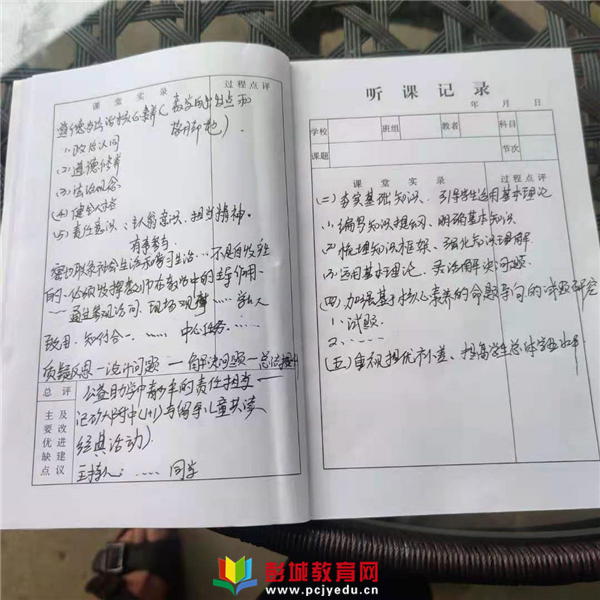 课堂实录 过程点评
道德与法治核心素养(教学的出发点和
落脚地)
(1)政治认同
(2)道德修养
(3)法治观念
(4)健全人格
(5)责任意识、主人翁意识、担当精神。
有序参与
密切联系社会生活和学习生活...不是自发产生
的。必须发挥教师在教学中的主导作用
通过参观访问、现场观摩
致用、知行合一、...... 中心任务
质疑反思—设计问题—自解决问题—总结提升
总评
主要优缺点及改进建议
公益助学中青少年的责任担当—
记功大附中(1+1)与留守儿童共读
经典活动)
主持人:...... 同学
听课记录
年 月 日
学校 班组 教者 科目
课题 节次
课堂实录 过程点评
(二)夯实基础知识、引导学生运用基本理论
(1)编罗知识提纲、明确基本知识。
(2)梳理知识框架、强化知识理解
(3)运用基本理论、灵活解决问题.
(四)加强基于核心素养的命题导向的试题研究
1.试题
2、.....
(五)重视提优补差、提高学生总体实水平
彭城教育网
www.pcjyedu.cn